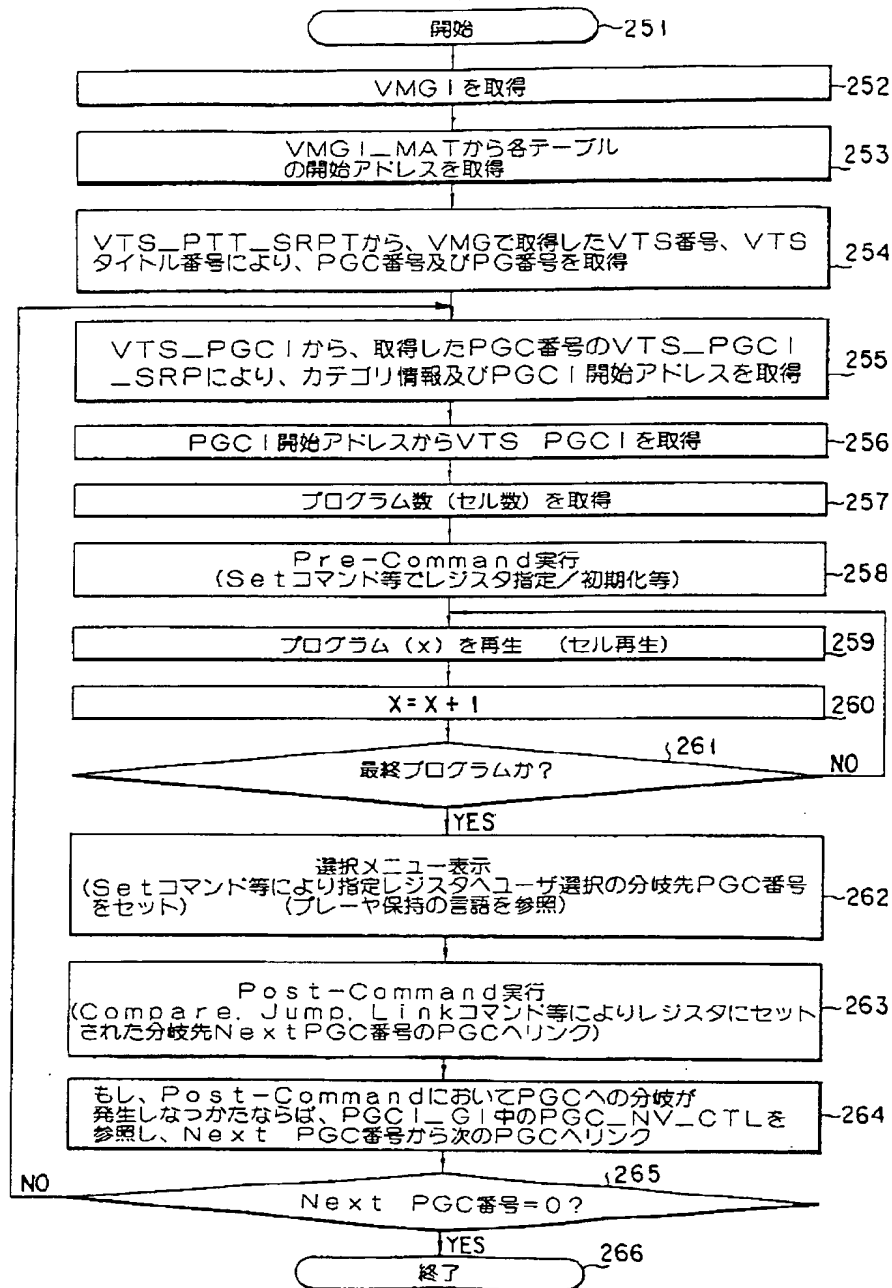 開始
251
VMGIを取得
252
VMGI_MATから各テーブル
の開始アドレスを取得
253
VTS_PTT_SRPTから、VMGで取得したVTS番号、VTS
タイトル番号により、PGC番号及びPG番号を取得
254
VTS_PGCIから、取得したPGC番号のVTS_PGCI
_SRPにより、カテゴリ情報及びPGCI開始アドレスを取得
255
PGCI開始アドレスからVTS PGCIを取得
256
プログラム数(セル数)を取得
257
Pre-Command実行
(Setコマンド等でレジスタ指定/初期化等)
258
プログラム(x)を再生 (セル再生)
259
X=X+1
260
261
最終プログラムか?
NO
YES
選択メニュー表示
(Setコマンド等により指定レジスタへユーザ選択の分岐先PGC番号
をセット) (プレーヤ保持の言語を参照)
262
Post-Command実行
(Compare, Jump, Linkコマンド等によりレジスタにセット
された分岐先NextPGC番号のPGCへリンク)
263
もし、Post-CommandにおいてPGCへの分岐が
発生しなつかたならば、PGCI_GI中のPGC_NV_CTLを
参照し、Next PGC番号から次のPGCへリンク
264
265
NO
Next PGC番号=0?
YES
終了
266